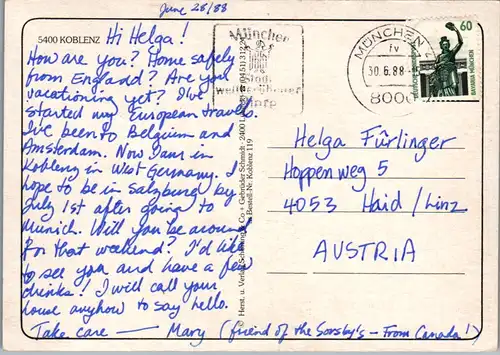 June 28/88
5400 KOBLENZ
Hi Helga!
How are you? Home safely
from England? Are you
vacationing yet? I've
started my European travels.
I've been to Belgium and
Amsterdam. Now I am in
Koblenz in West Germany. I
hope to be in Salzburg by
July 1st after going to
Munich. Will you be around
for that weekend? I'd like
to see you and have a few
drinks! I will call your
house anyhow to say hello.
Take care — Mary (friend of the Sorsby's - From Canada!)
© Herst. u. Verlag Schöning & Co + Gebrüder Schmidt · 2400
Bestell-Nr. Koblenz 119
München
MÜNCHEN
fv
30.6.88
8000
60
BAVARIA MÜNCHEN
Helga Fürlinger
Hoppenweg 5
4053 Haid/Linz
AUSTRIA